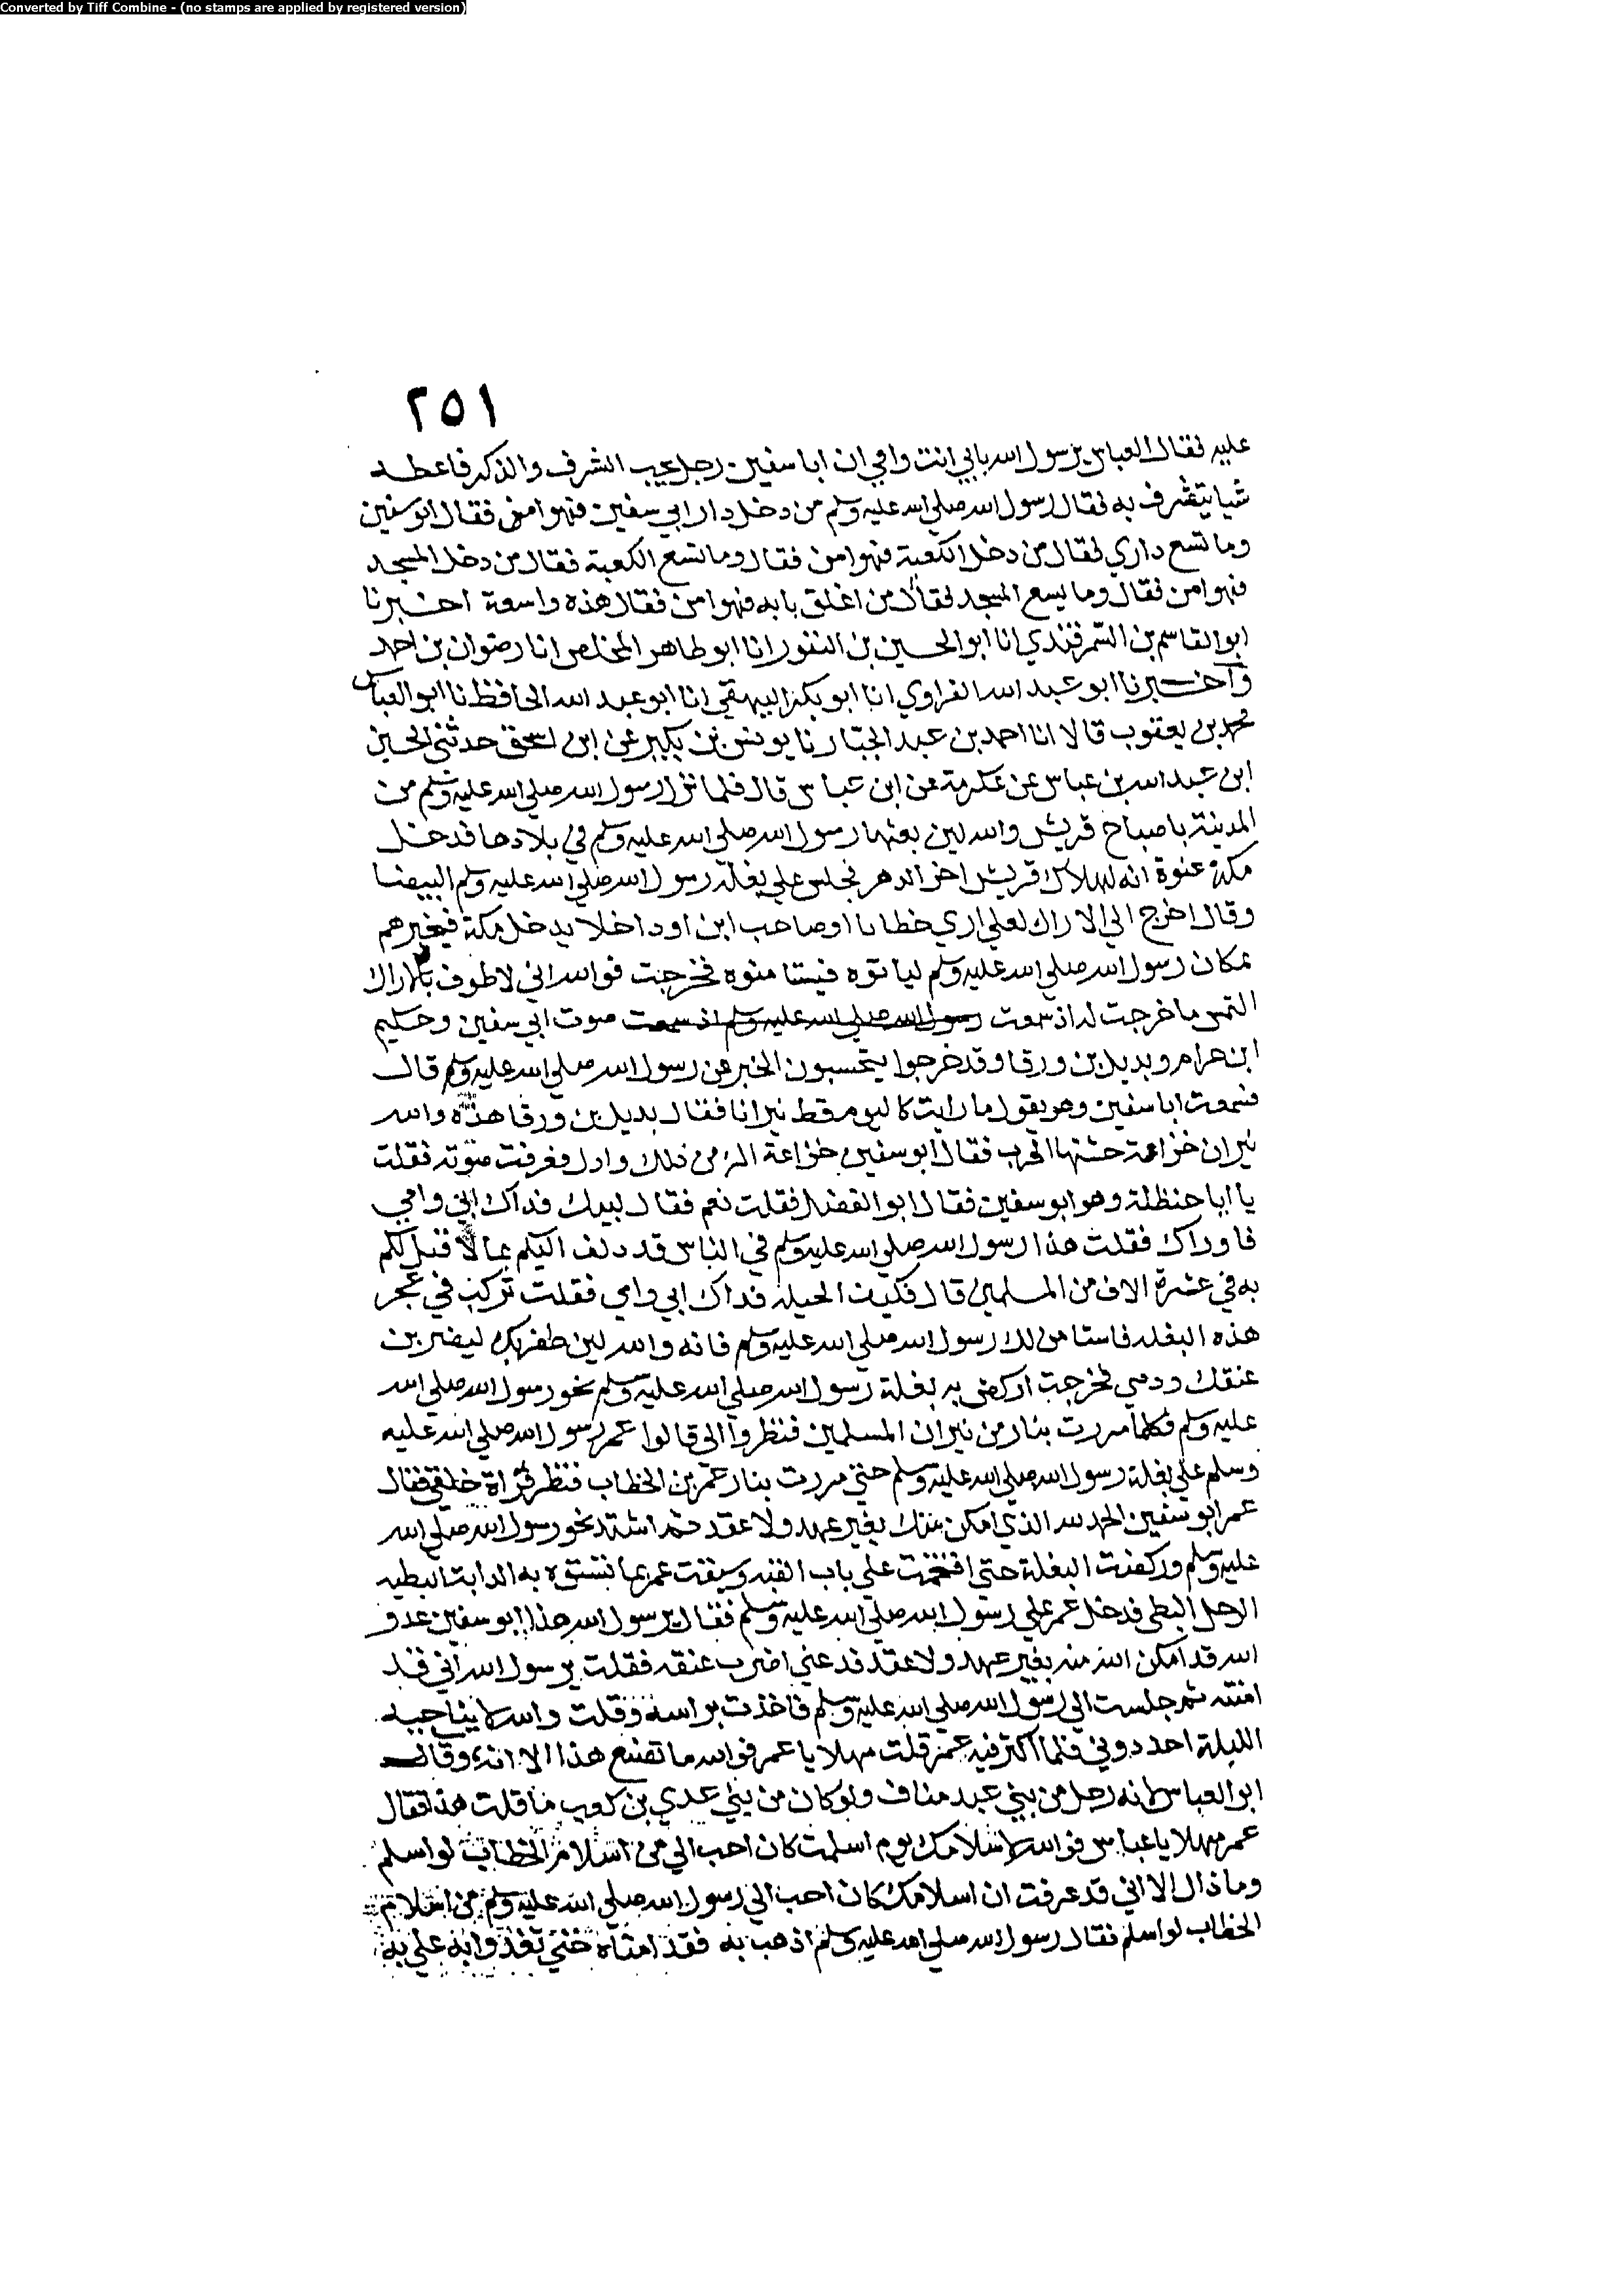 Converted by Tiff Combine - (no stamps are applied by registered version)
٢٥١
عليه فقال العباس يرسول الله بابي انت وامي ان ابا سفين رجل يحب الشرف والذكر فاعطه
شيا يتشرف به فقال رسول الله صلي الله عليه وسلم من دخل دار ابي سفين فهو امن فقال ابو سفين
وما تسع داري فقال من دخل الكعبة فهو امن فقال وما تسع الكعبة فقال من دخل المسجد
فهو امن فقال وما يسع المسجد فقال من اغلق بابه فهو امن فقال هذه واسعة اخبرنا
ابو القاسم بن السمرقندي انا ابو الحسين بن النقور انا ابو طاهر المخلص انا رضوان بن احمد
واخبرنا ابو عبد الله الفراوي انا ابو بكر البيهقي انا ابو عبد الله الحافظ نا ابو العباس
محمد بن يعقوب قالا انا احمد بن عبد الجبار نا يونس بن بكير عن ابن اسحق حدثني الحسين
ابن عبد الله بن عباس عن عكرمة عن ابن عباس قال فلما نزل رسول الله صلي الله عليه وسلم من
المدينة باصباح قريش والله لين بغتها رسول الله صلي الله عليه وسلم في بلادها فدخل
مكة عنوة انه لهلاك قريش اخر الدهر فجلس علي بغلة رسول الله صلي الله عليه وسلم البيضا
وقال اخرج الي الاراك لعلي اري خطابا او صاحب ابن او داخلا يدخل مكة فيخبرهم
بمكان رسول الله صلي الله عليه وسلم لياتوه فيستامنوه فخرجت فوالله اني لاطوف بالاراك
التمس ما خرجت له اذ سمعت رسول الله صلي الله عليه وسلم اذ سمعت صوت ابي سفين وحكيم
ابن حرام وبديل بن ورقا وقد خرجوا يتحسبون الخبر عن رسول الله صلي الله عليه وسلم قال
فسمعت ابا سفين وهو يقول ما رايت كاليوم قط نيرانا فقال بديل بن ورقا هذه والله
نيران خزاعة حشتها الحرب فقال ابو سفين خزاعة الم من ذلك واذل فعرفت صوته فقلت
يا ابا حنظلة وهو ابو سفين فقال ابو الفضل فقلت نعم فقال لبيك فداك ابي وامي
فاوراك فقلت هذا رسول الله صلي الله عليه وسلم في الناس قد دلف اليكم بما لا قبل لكم
به في عشرة الاف من المسلمين قال فكيف الحيلة فداك ابي وامي فقلت تركب في عجز
هذه البغله فاستامن لك رسول الله صلي الله عليه وسلم فانه والله لين ظفر بك ليضربن
عنقك ودمي فخرجت اركض به بغلة رسول الله صلي الله عليه وسلم نحو رسول الله صلي الله
عليه وسلم فكلما مررت بنار من نيران المسلمين فنظروا الي قالوا عم رسول الله صلي الله عليه
وسلم علي بغلة رسول الله صلي الله عليه وسلم حتي مررت بنار عمر بن الخطاب فنظر فراه خلفي فقال
عمر ابو سفين الحمد لله الذي امكن منك بغير عهد ولا عقد ثم اشتد نحو رسول الله صلي الله
عليه وسلم وركضت البغلة حتي اقتحمت علي باب القبه وسبقت عمر بما تسبق به الدابة البطيه
الرجل البطي فدخل عمر علي رسول الله صلي الله عليه وسلم فقال يرسول الله هذا ابو سفين عدو
الله قد امكن الله منه بغير عهد ولا عقد فدعني اضرب عنقه فقلت يرسول الله اني قد
امنته ثم جلست الي رسول الله صلي الله عليه وسلم فاخذت براسه وقلت والله لا يناجيه
الليلة احد دوني فلما اكثر فيه عمر قلت مهلا يا عمر فوالله ما تصنع هذا الا انه وقال
ابو العباس لانه رجل من بني عبد مناف ولو كان من بني عدي بن كعب ما قلت هذا فقال
عمر مهلا يا عباس فوالله لاسلامك يوم اسلمت كان احب الي من اسلام الخطاب لو اسلم
وما ذال الا اني قد عرفت ان اسلامك كان احب الي رسول الله صلي الله عليه وسلم من اسلام
الخطاب لو اسلم فقال رسول الله صلي الله عليه وسلم اذهب به فقد امناه حتي تغدوا به علي به